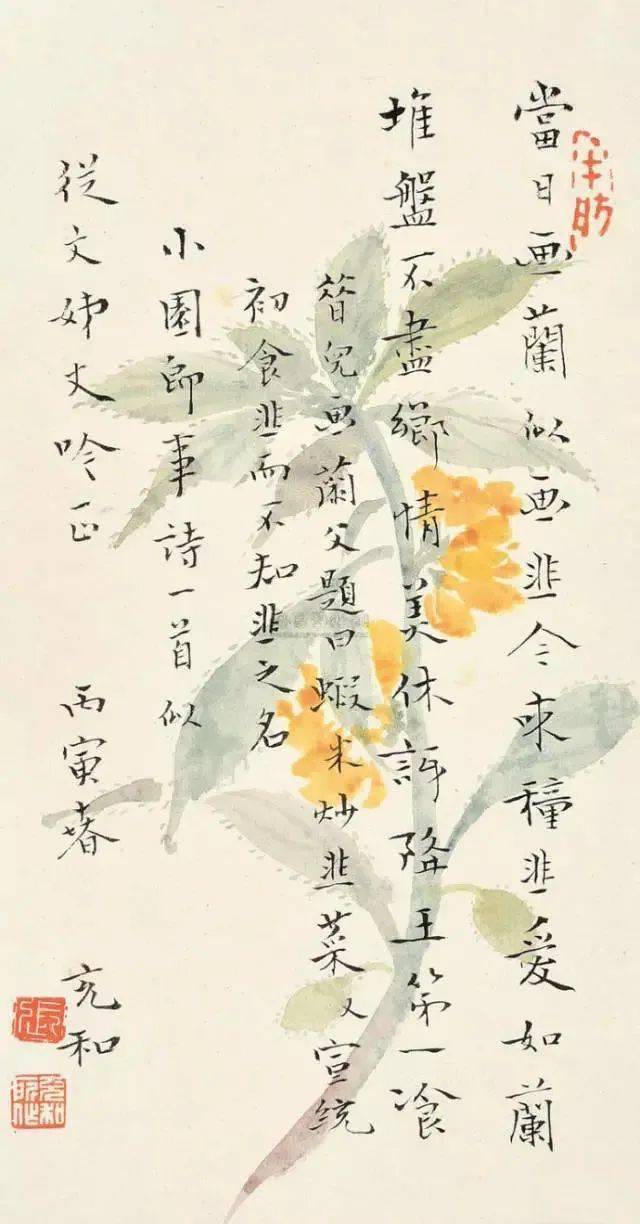 當日画蘭似画韭今來種韭愛如蘭
堆盤不盡鄉情美休訝降王第一飡
昝兒画蘭父題曰蝦米炒韭菜又宣統
初食韭而不知韭之名
小園即事詩一首似
從文姊丈吟正
丙寅春
充和